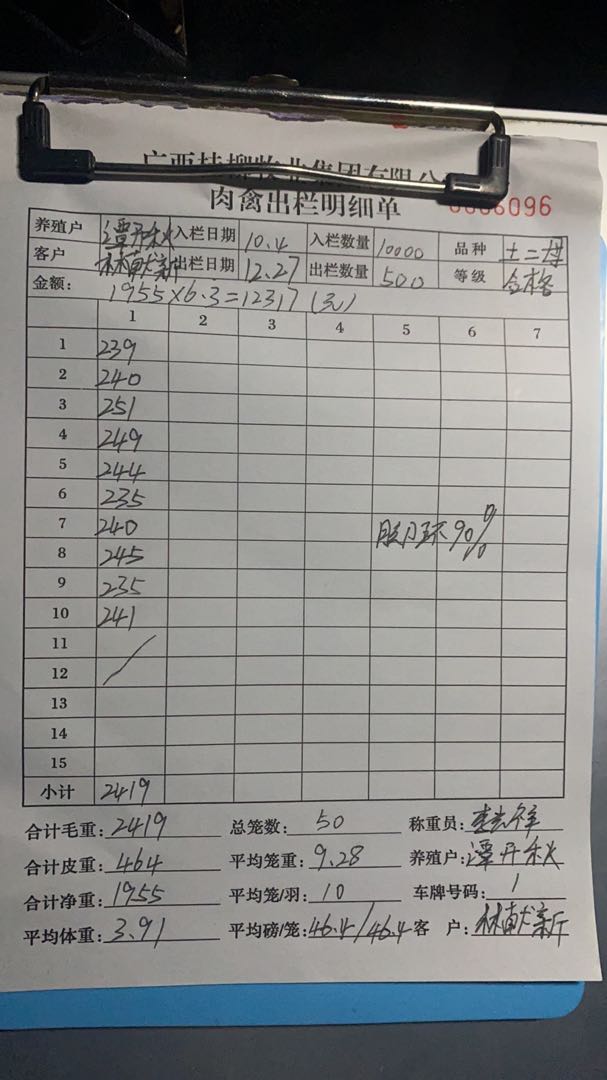 广西桂柳牧业集团有限公
肉禽出栏明细单
0006096
养殖户 潭开秋 入栏日期 10.4 入栏数量 10000 品种 土二母
客户 林献新 出栏日期 12.27 出栏数量 500 等级 合格
金额: 1955×6.3=12317(元)
1 2 3 4 5 6 7
1 239
2 240
3 251
4 249
5 244
6 235
7 240 脚环90%
8 245
9 235
10 241
11
12
13
14
15
小计 2419
合计毛重: 2419 总笼数: 50 称重员:
合计皮重: 464 平均笼重: 9.28 养殖户: 潭开秋
合计净重: 1955 平均笼/羽: 10 车牌号码: 1
平均体重: 3.91 平均磅/笼: 46.4/46.4 客 户: 林献新